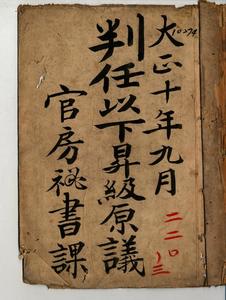 10274
大正十年九月
判任以下昇級原議
官房祕書課
二二〇